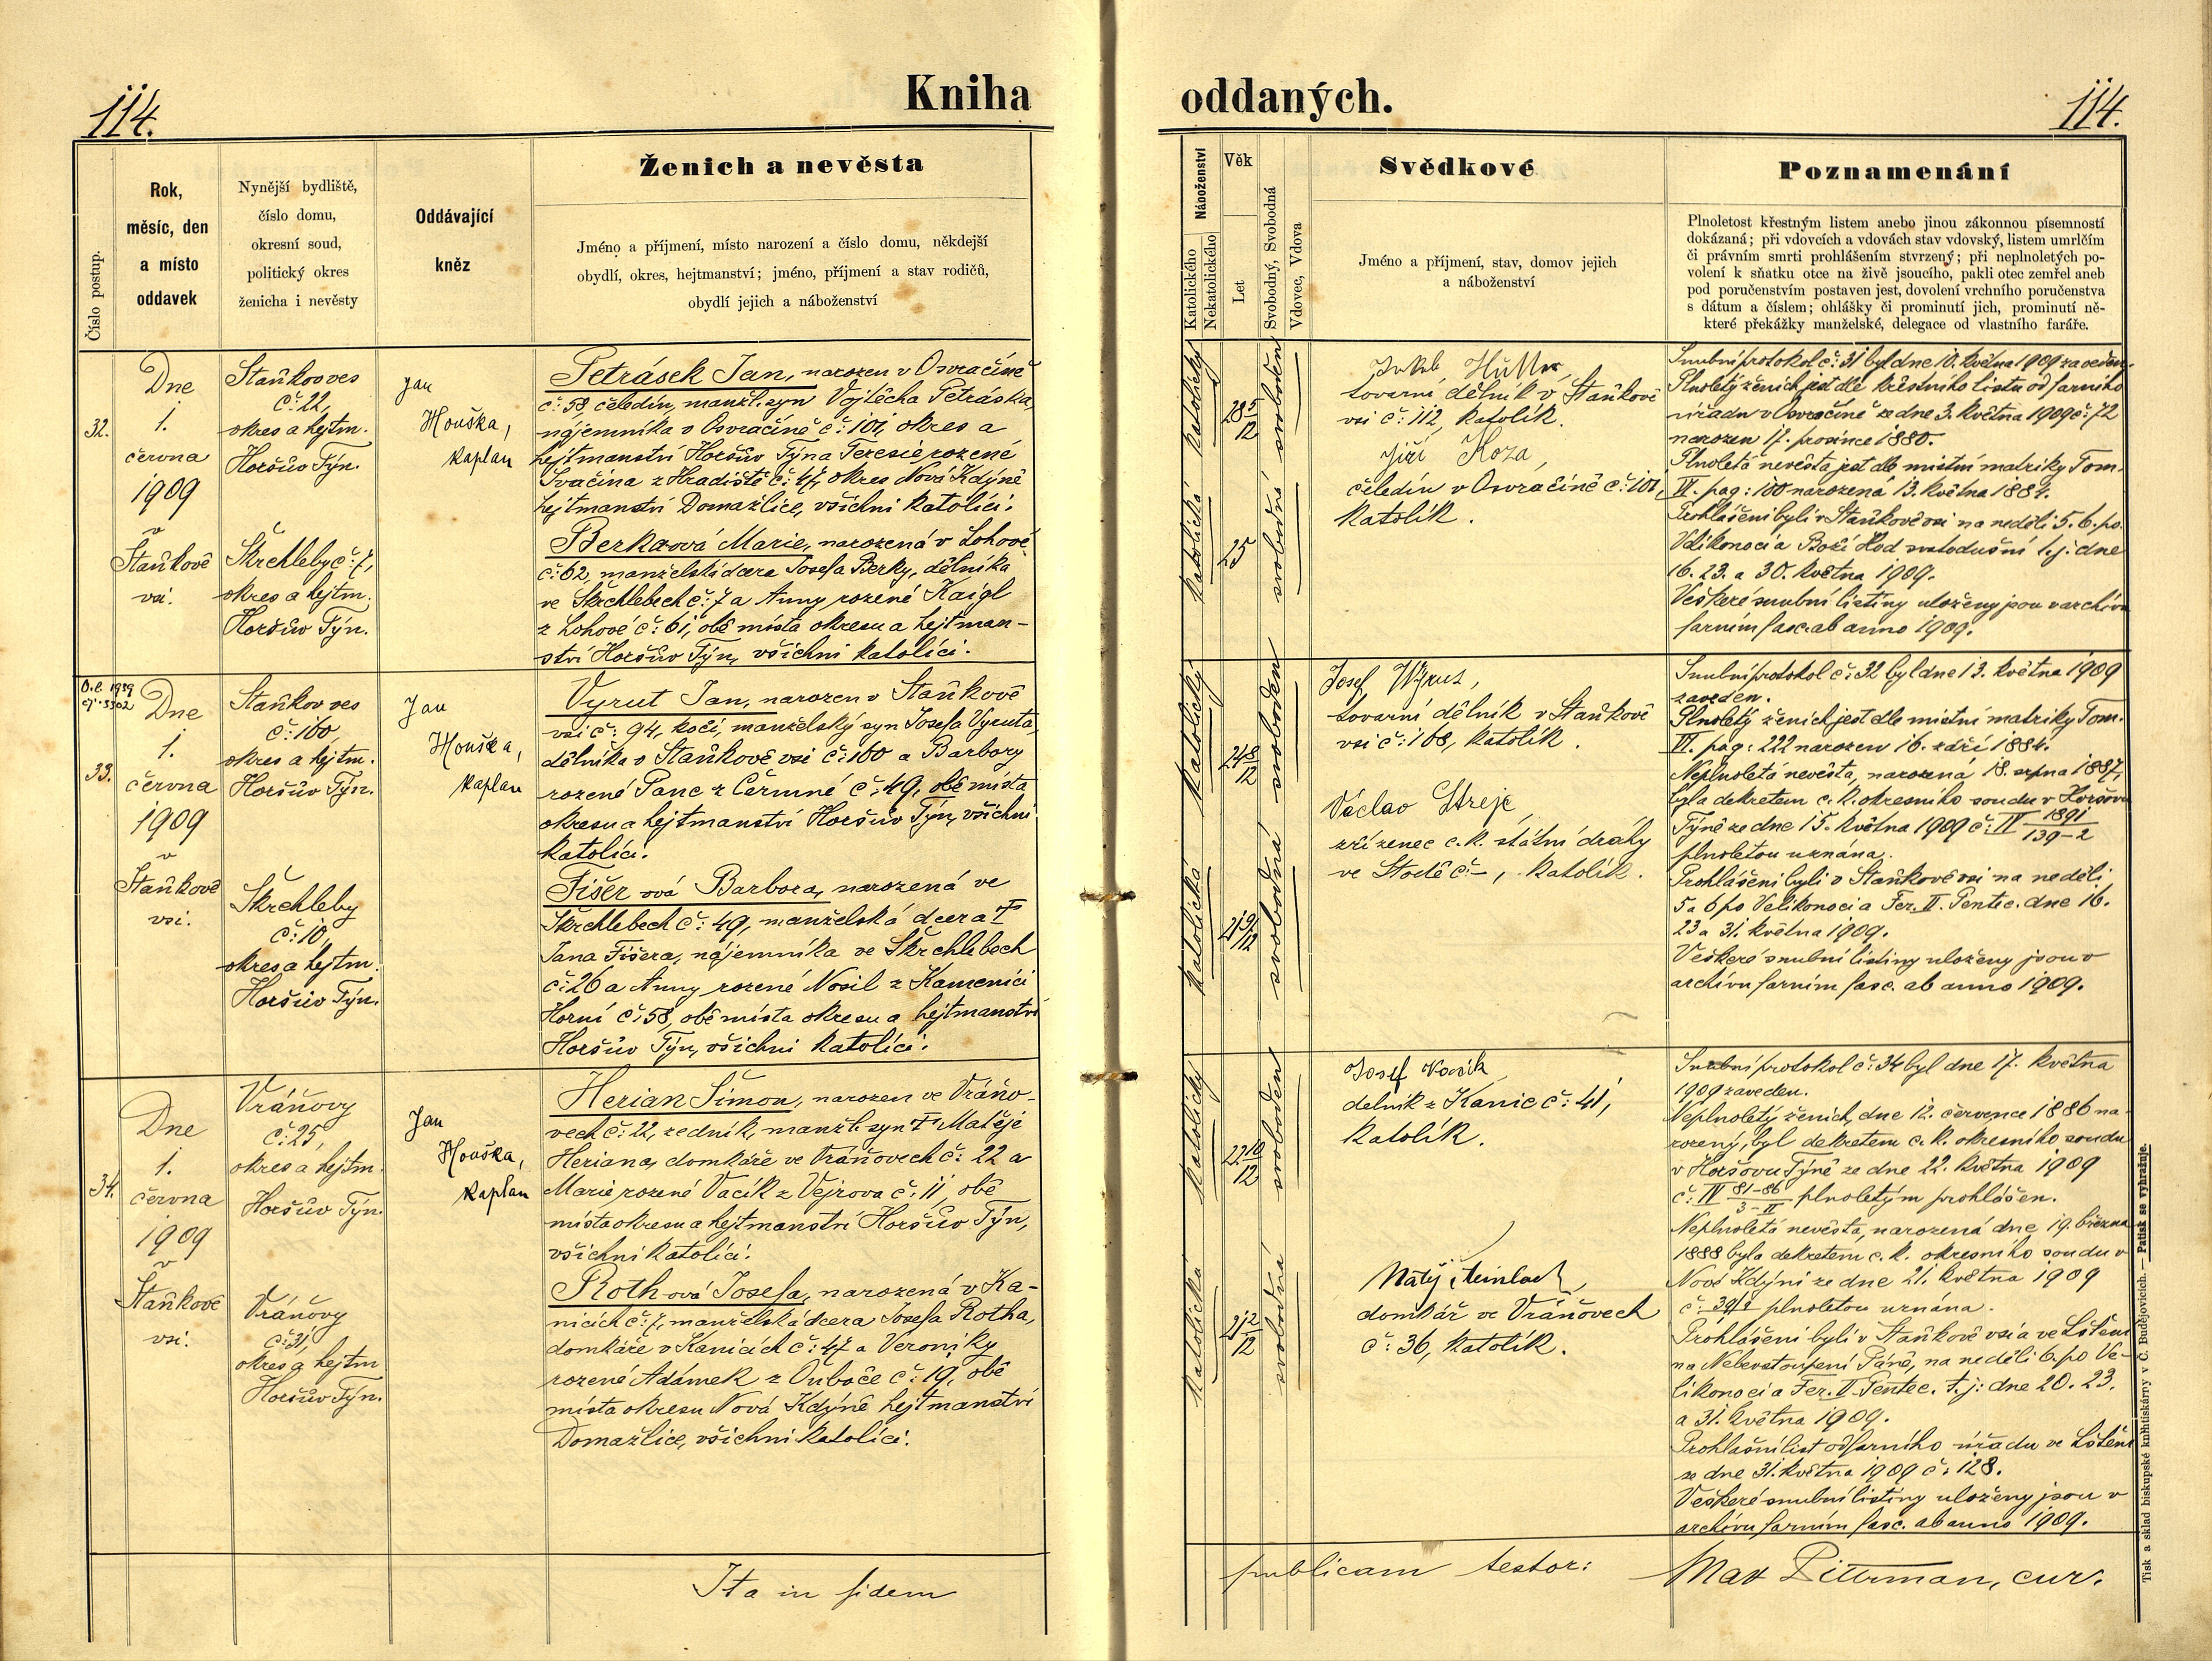 114.
Kniha
oddaných.
114.
Číslo postup.
Rok,
měsíc, den
a místo
oddavek
Nynější bydliště,
číslo domu,
okresní soud,
politický okres
ženicha i nevěsty
Oddávající
kněz
Ženich a nevěsta
Jméno a příjmení, místo narození a číslo domu, někdejší
obydlí, okres, hejtmanství; jméno, příjmení a stav rodičů,
obydlí jejich a náboženství
Náboženství
Katolického
Nekatolického
Věk
Let
Svobodný, Svobodná
Vdovec, Vdova
Svědkové
Jméno a příjmení, stav, domov jejich
a náboženství
Poznamenání
Plnoletost křestným listem anebo jinou zákonnou písemností
dokázaná; při vdovcích a vdovách stav vdovský, listem umrlčím
či právním smrti prohlášením stvrzený; při neplnoletých po-
volení k sňatku otce na živě jsoucího, pakli otec zemřel aneb
pod poručenstvím postaven jest, dovolení vrchního poručenstva
s dátum a číslem; ohlášky či prominutí jich, prominutí ně-
které překážky manželské, delegace od vlastního faráře.
32.
Dne
1.
června
1909
v
Staňkově
vsi.
Staňkov ves
č: 22,
okres a hejtm.
Horšův Týn.
Škrchleby č: 7,
okres a hejtm.
Horšův Týn.
Jan
Houška,
kaplan
Petrásek Jan, narozen v Osvračíně
č: 58, čeledín, manžl. syn Vojtěcha Petráska,
nájemníka v Osvračíně č: 101, okres a
hejtmanství Horšův Týn a Terezie rozené
Svačina z Hradiště č: 47, okres Nová Kdýně
hejtmanství Domažlice, všichni katolíci.
Berka-ová Marie, narozená v Lohově
č: 62, manželská dcera Josefa Berky, dělníka
ve Škrchlebech č: 7 a Anny rozené Kaigl
z Lohové č: 61, obě místa okresu a hejtman-
ství Horšův Týn, všichni katolíci.
katolický
28 5/12
svoboden
katolická
25
svobodná
Hüttner,
tovární dělník v Staňkově
vsi č: 112, katolík.
Jiří Koza,
čeledín v Osvračíně č: 101,
katolík.
Snubní protokol č: 31 byl dne 10. května 1909 zaveden.
Plnoletý ženich jest dle křestního listu od farního
úřadu v Osvračíně ze dne 3. května 1909 č: 72
narozen 17. prosince 1880.
Plnoletá nevěsta jest dle místní matriky Tom.
VI. pag: 100 narozená 13. května 1884.
Prohlášeni byli v Staňkově vsi na neděli 5. 6. po
Velikonoci a Boží Hod svatodušní t. j: dne
16. 23. a 30. května 1909.
Veškeré snubní listiny uloženy jsou v archivu
farním fasc. ab anno 1909.
O. l. 1939
čj. 3302
33.
Dne
1.
června
1909
v
Staňkově
vsi.
Staňkov ves
č: 160,
okres a hejtm.
Horšův Týn.
Škrchleby
č: 10,
okres a hejtm.
Horšův Týn.
Jan
Houška,
kaplan
Vyrut Jan, narozen v Staňkově
vsi č: 94, kočí, manželský syn Josefa Vyruta,
dělníka v Staňkově vsi č: 160 a Barbory
rozené Panc z Čermné č: 49, obě místa
okresu a hejtmanství Horšův Týn, všichni
katolíci.
Fišer-ová Barbora, narozená ve
Škrchlebech č: 49, manželská dcera †
Jana Fišera, nájemníka ve Škrchlebech
č: 26 a Anny rozené Nosil z Kamenici
Horní č: 58, obě místa okresu a hejtmanství
Horšův Týn, všichni katolíci.
katolický
24 8/12
svoboden
katolická
21 9/12
svobodná
Josef
tovární dělník v Staňkově
vsi č: 168, katolík.
Václav Strejc,
zřízenec c. k. státní dráhy
ve Stodě č: –, katolík.
Snubní protokol č: 32 byl dne 13. května 1909
zaveden.
Plnoletý ženich jest dle místní matriky Tom.
VI. pag: 222 narozen 16. září 1884.
Neplnoletá nevěsta, narozená 18. srpna 1887,
byla dekretem c. k. okresního soudu v Horšovu
Týně ze dne 15. května 1909 č: IV 1891/139-2
plnoletou uznána.
Prohlášeni byli v Staňkově vsi na neděli
5 a 6 po Velikonoci a Fer. II. Pentec. dne 16.
23 a 31. května 1909.
Veškeré snubní listiny uloženy jsou v
archivu farním fasc. ab anno 1909.
34.
Dne
1.
června
1909
v
Staňkově
vsi.
Vráňovy
č: 25,
okres a hejtm.
Horšův Týn.
Vráňovy
č: 31,
okres a hejtm
Horšův Týn.
Jan
Houška,
kaplan
Herian Šimon, narozen ve Vráňo-
vech č: 22, zedník, manžl. syn † Matěje
Heriana, domkáře ve Vráňovech č: 22 a
Marie rozené Vacík z Vejrova č: 11, obě
místa okresu a hejtmanství Horšův Týn,
všichni katolíci.
Roth-ová Josefa, narozená v Ka-
nicích č: 7, manželská dcera Josefa Rotha,
domkáře v Kanicích č: 47 a Veroniky
rozené Adámek z Ouboče č: 19, obě
místa okresu Nová Kdýně hejtmanství
Domažlice, všichni katolíci.
katolický
22 10/12
svoboden
katolická
21 2/12
svobodná
Josef
dělník z Kanic č: 41,
katolík.
Matěj
domkář ve Vráňovech
č: 36, katolík.
Snubní protokol č: 34 byl dne 17. května
1909 zaveden.
Neplnoletý ženich, dne 12. července 1886 na-
rozený, byl dekretem c. k. okresního soudu
v Horšovu Týně ze dne 22. května 1909
č: IV 81-86/3-II plnoletým prohlášen.
Neplnoletá nevěsta, narozená dne 19. března
1888 byla dekretem c. k. okresního soudu v
Nové Kdýni ze dne 21. května 1909
č: 39/2 plnoletou uznána.
Prohlášeni byli v Staňkově vsi a ve Lštění
na Nebevstoupení Páně, na neděli 6. po Ve-
likonoci a Fer. II. Pentec. t. j: dne 20. 23.
a 31. května 1909.
Prohlašní list od farního úřadu ve Lštění
ze dne 31. května 1909 č: 128.
Veškeré snubní listiny uloženy jsou v
archivu farním fasc. ab anno 1909.
Ita in fidem
publicam testor:
Max Pittrman, cur.
Tisk a sklad biskupské knihtiskárny v Č. Budějovicích. — Patisk se vyhražuje.